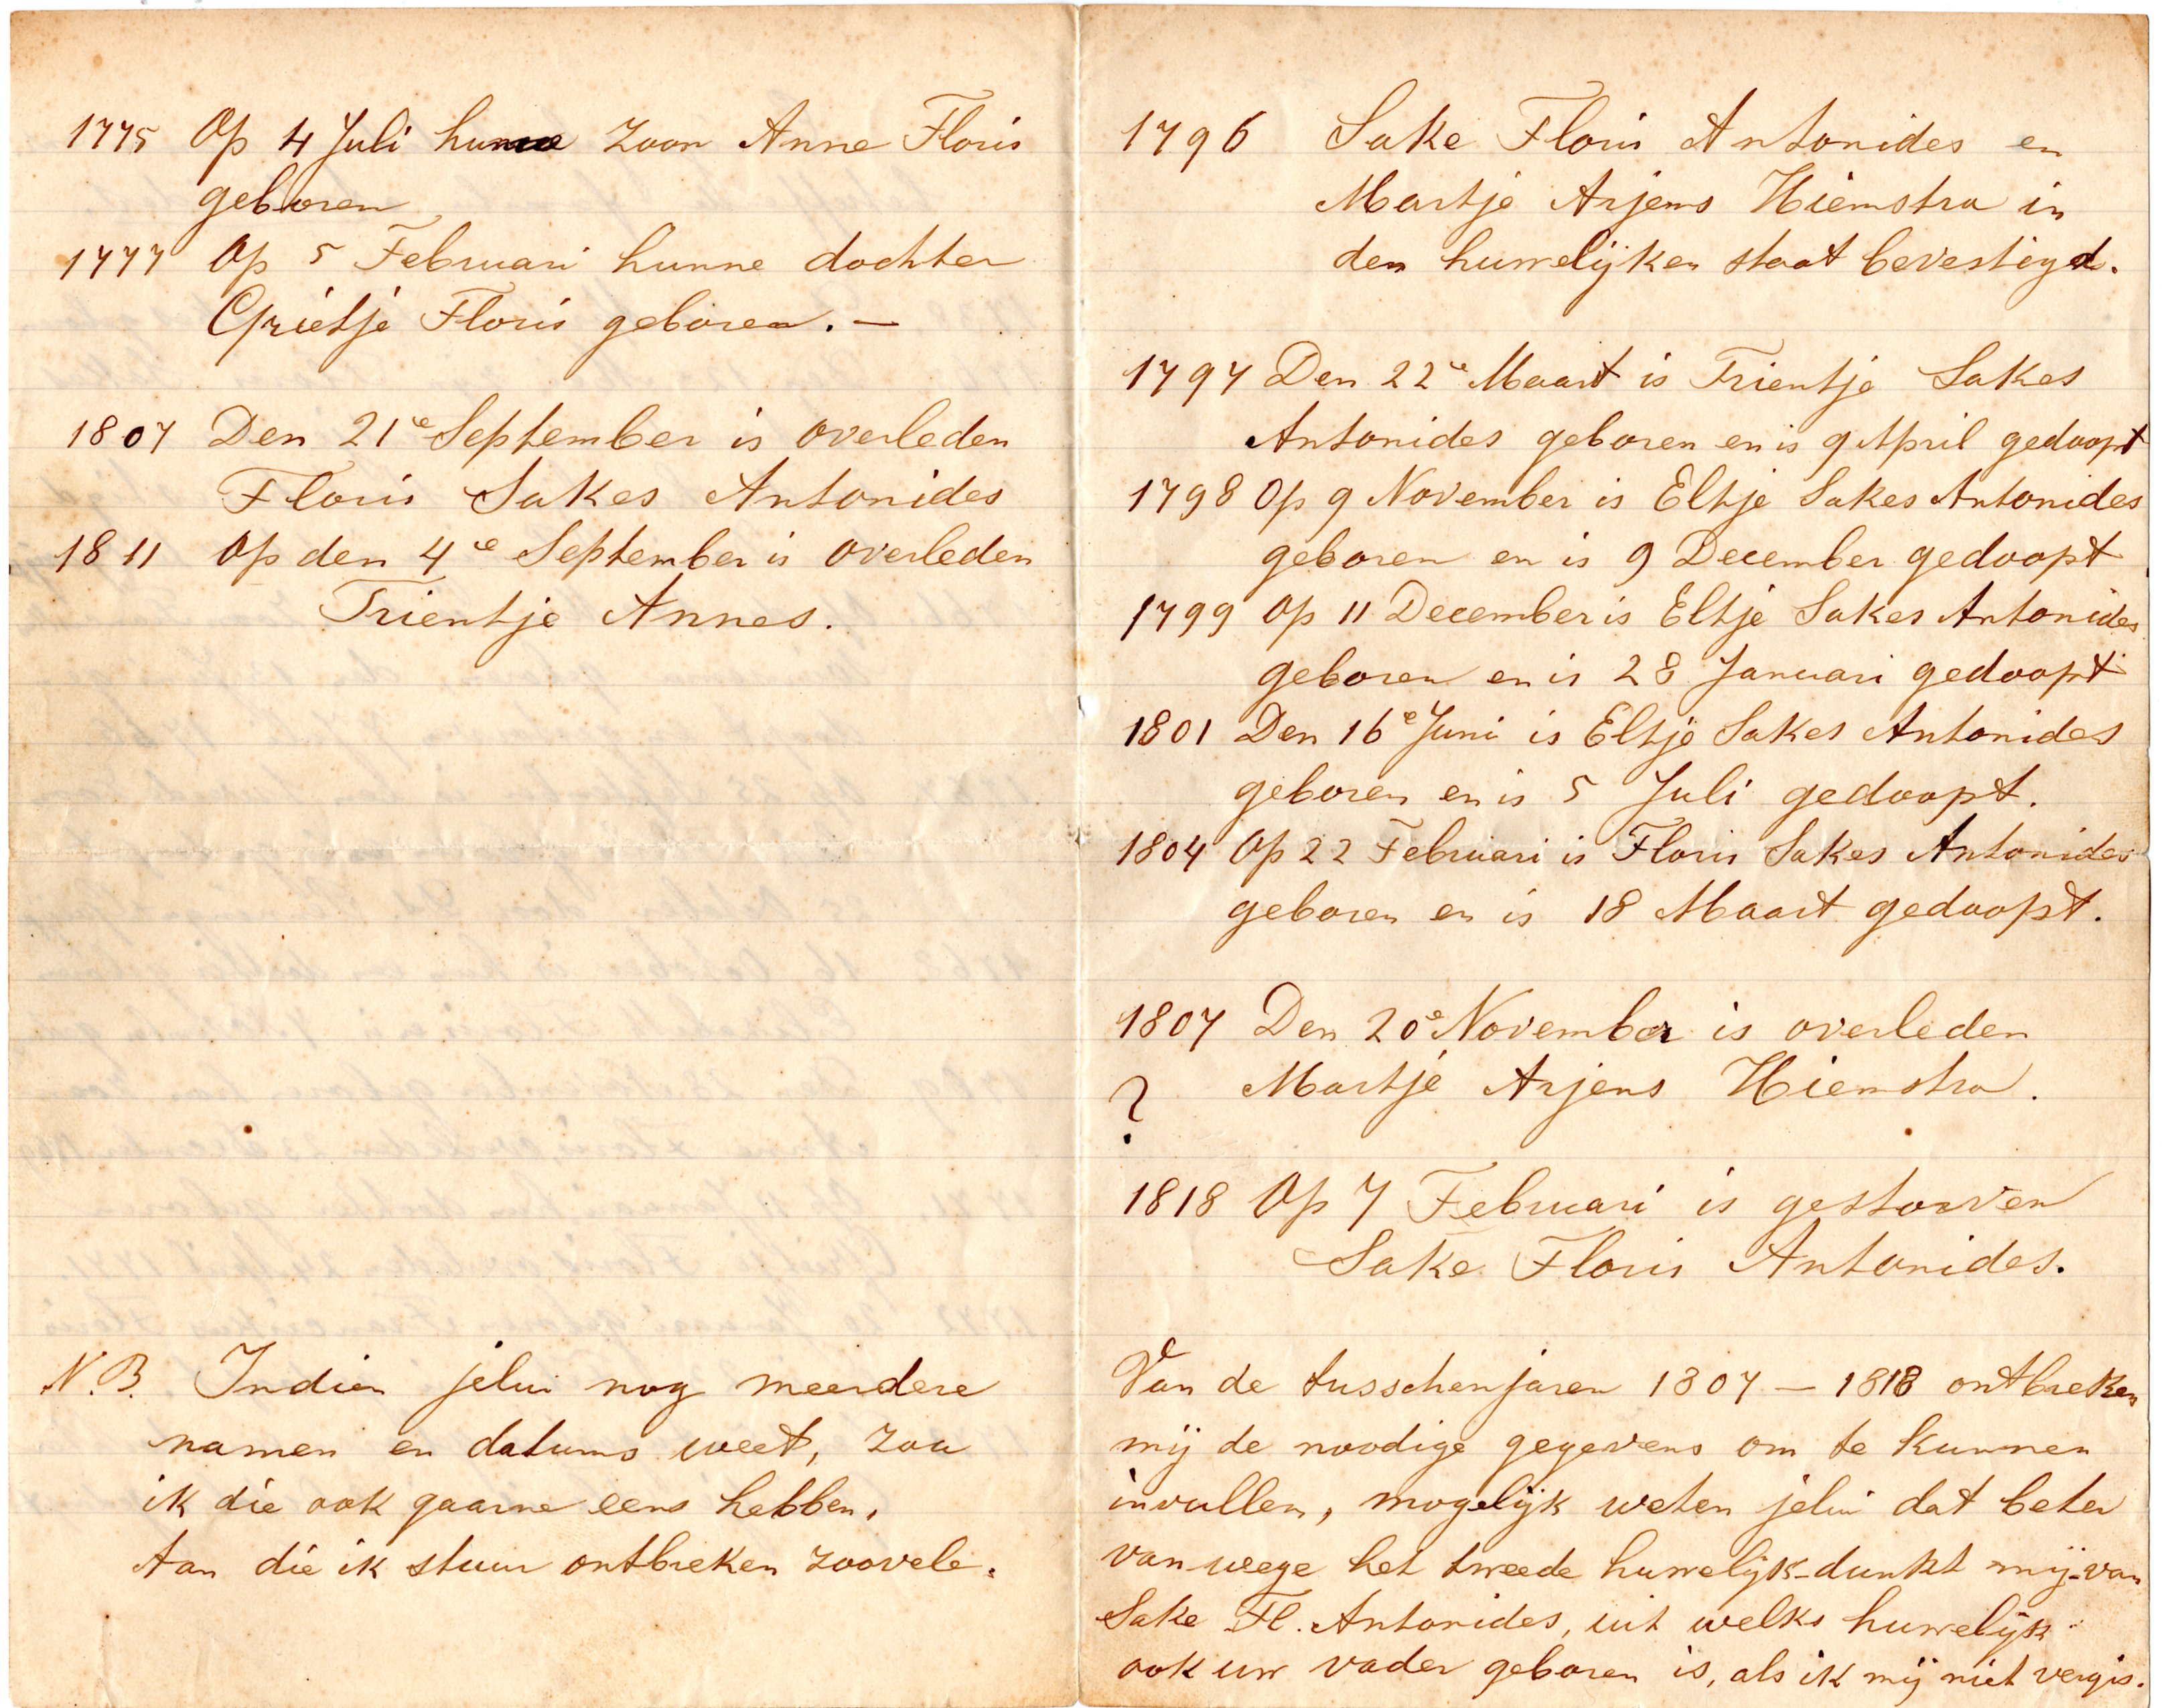 1775 Op 4 Juli hunne zoon Anne Floris
geboren
1777 Op 5 Februari hunne dochter
Grietje Floris geboren. —
1807 Den 21e September is overleden
Floris Sakes Antonides
1811 Op den 4e September is overleden
Trientje Annes.
N.B. Indien jelui nog meerdere
namen en datums weet, zou
ik die ook gaarne eens hebben,
Aan die ik stuur ontbreken zoovele.
1796 Sake Floris Antonides en
Martje Arjens Hiemstra in
den huwelijken staat bevestigd.
1797 Den 22e Maart is Trientje Sakes
Antonides geboren en is 9 April gedoopt
1798 Op 9 November is Eltje Sakes Antonides
geboren en is 9 December gedoopt
1799 Op 11 December is Eltje Sakes Antonides
geboren en is 28 Januari gedoopt
1801 Den 16e Juni is Eltje Sakes Antonides
geboren en is 5 Juli gedoopt.
1804 Op 22 Februari is Floris Sakes Antonides
geboren en is 18 Maart gedoopt.
1807 Den 20e November is overleden
? Martje Arjens Hiemstra.
1818 Op 7 Februari is gestorven
Sake Floris Antonides.
Van de tusschenjaren 1807 — 1818 ontbreken
mij de noodige gegevens om te kunnen
invullen, mogelijk weten jelui dat beter
van wege het tweede huwelijk-dunkt mij-van
Sake Fl. Antonides, uit welks huwelijk
ook uw vader geboren is, als ik mij niet vergis.